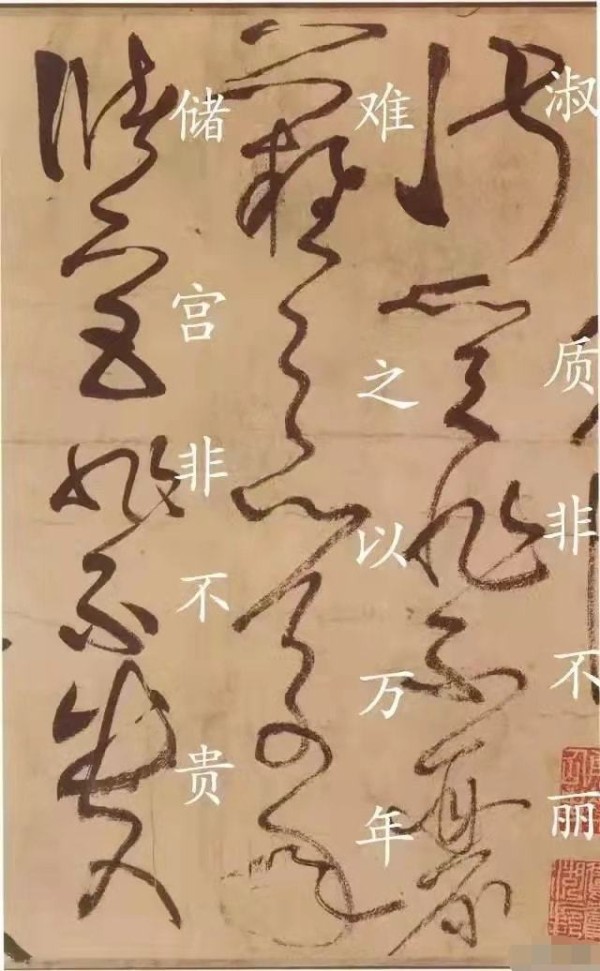 淑质非不丽
难之以万年
储宫非不贵